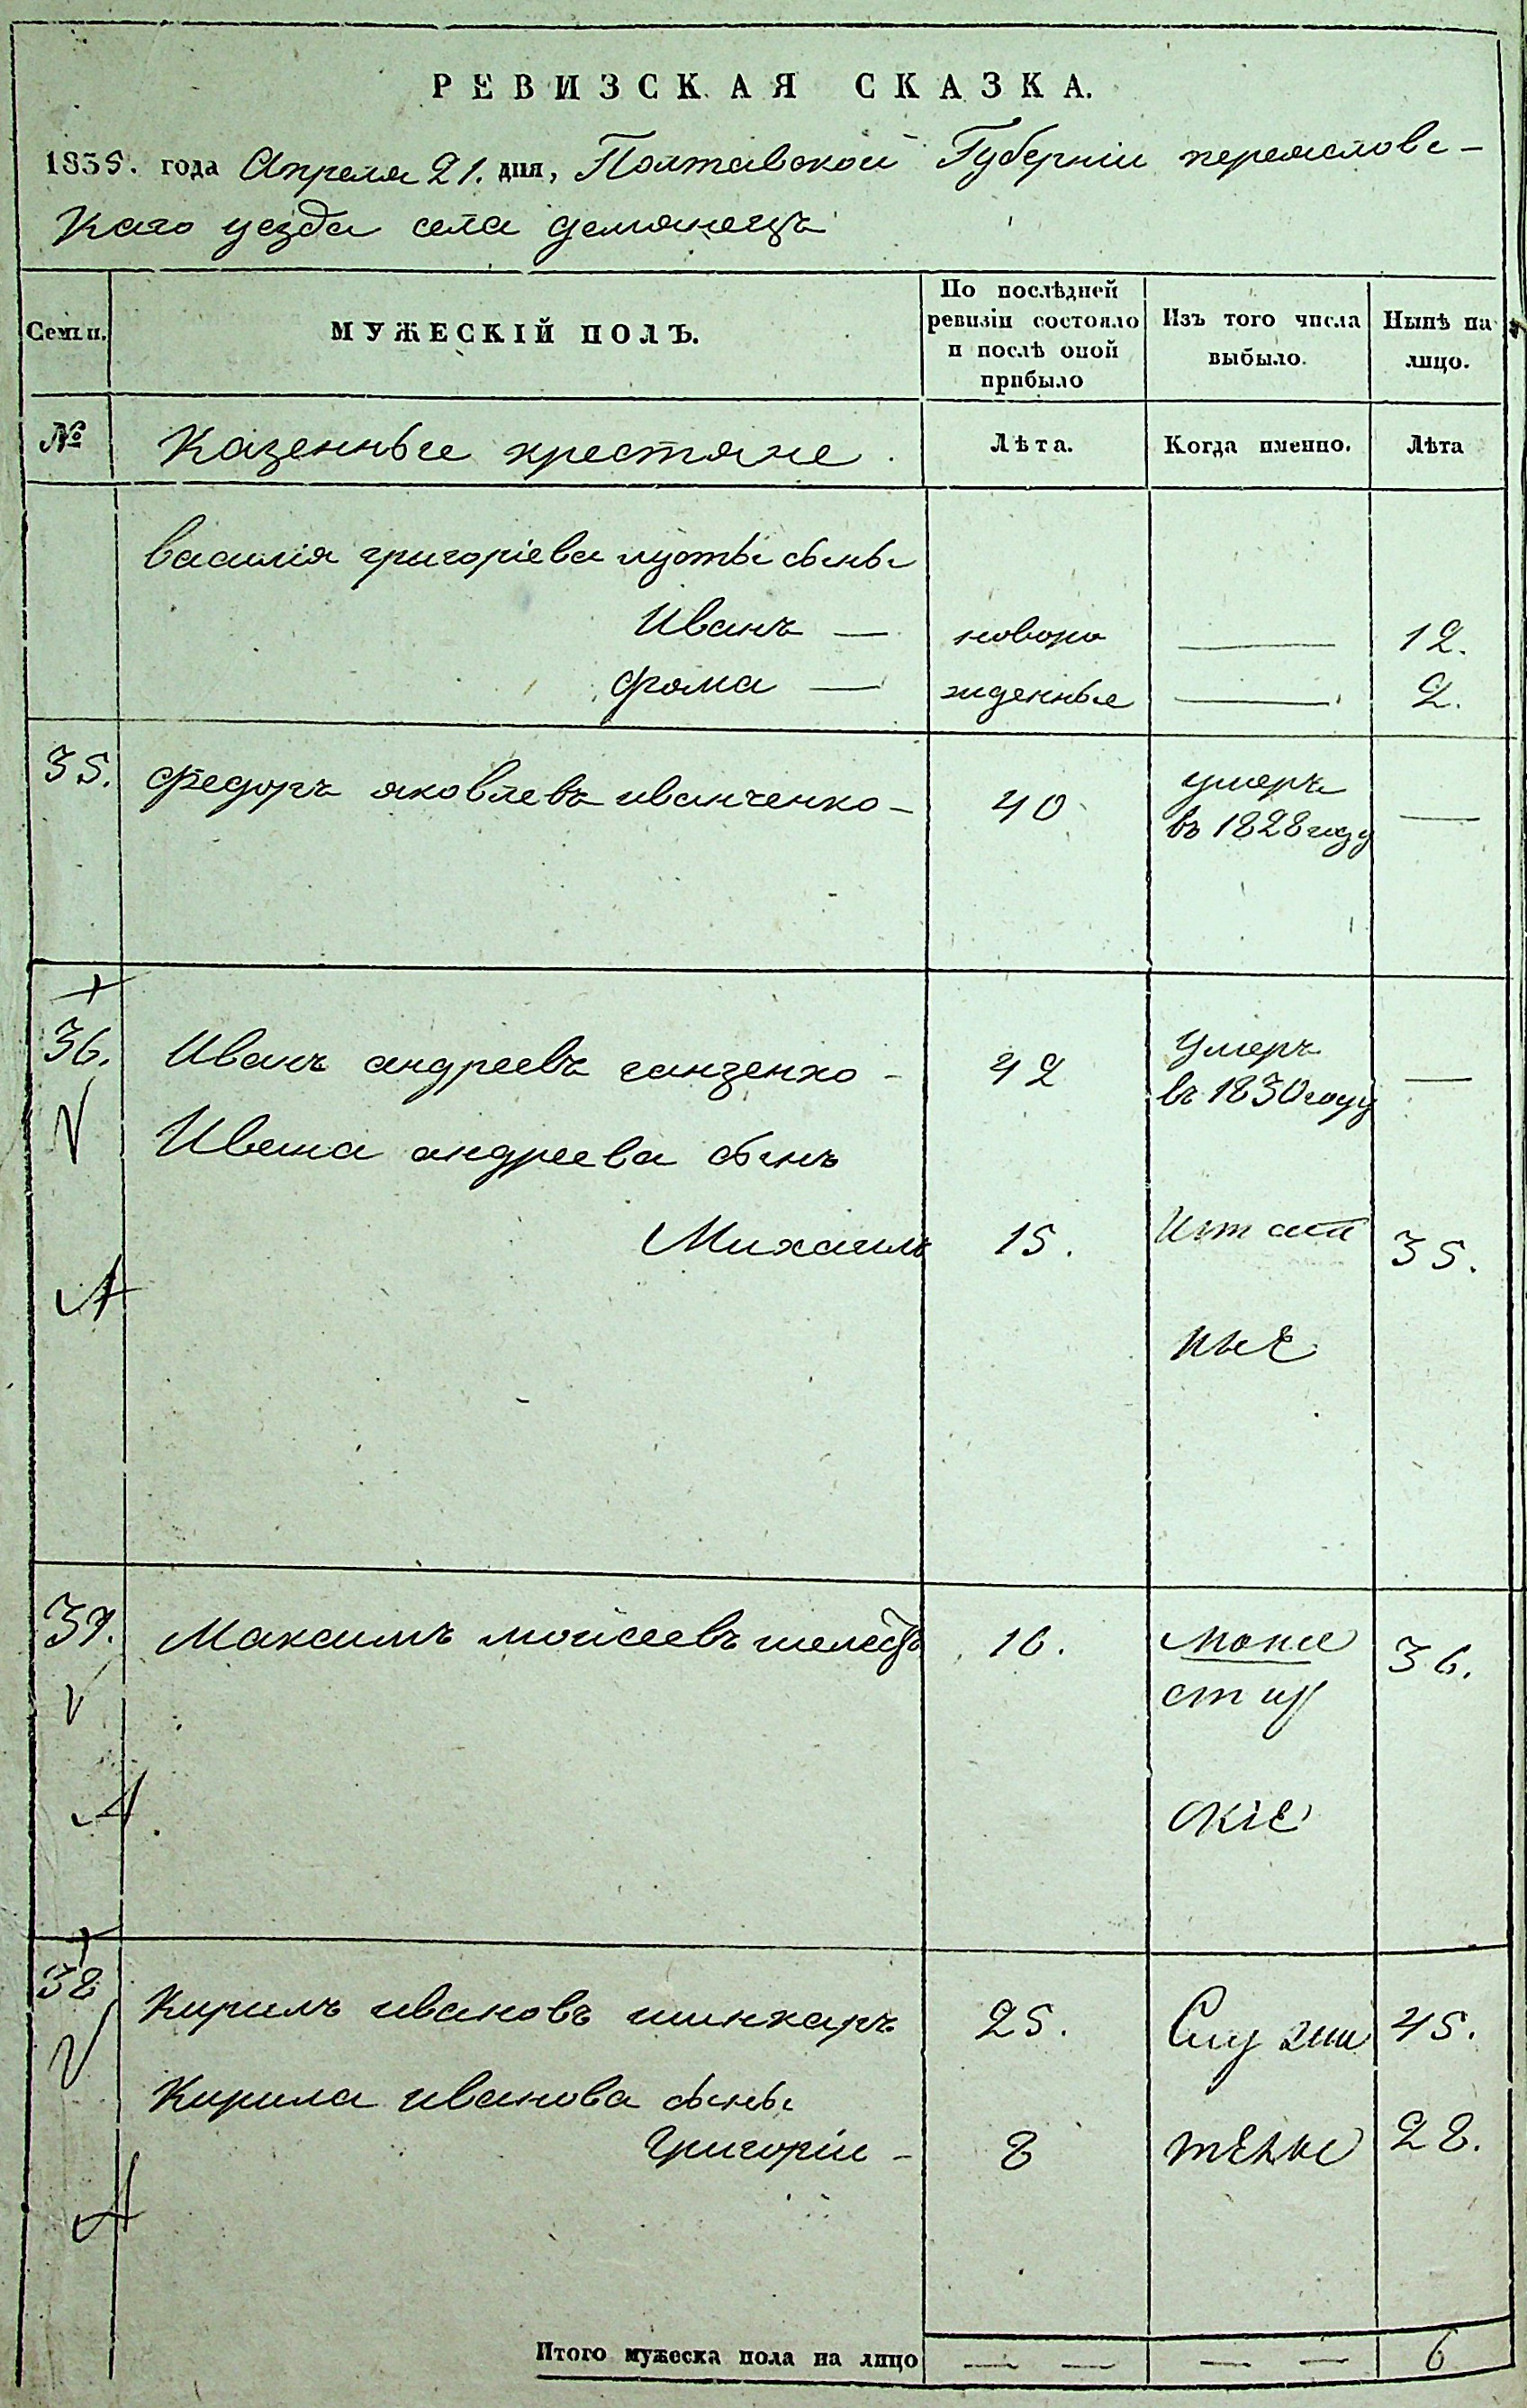 РЕВИЗСКАЯ СКАЗКА.
1835. года Апреля 21. дня, Полтавской Губерніи переяслове-
каго уезда села демянецъ
Семьи. МУЖЕСКІЙ ПОЛЪ. По послѣдней ревизіи состояло и послѣ оной прибыло Изъ того числа выбыло. Нынѣ на лицо.
№ Казенные крестяне. Лѣта. Когда именно. Лѣта
василія григоріева луты сыны
Иванъ — новоро — 12.
фома — жденные — 2.
35. Федоръ яковлевъ иванченко — 40 умеръ —
въ 1828 году
36. Иванъ андреевъ ганзенко - 42 умеръ —
въ 1830 году
Ивана андреева сынъ
Михаилъ 15. 35.
ные
37. Максимъ моисеевъ 16. мона 36.
стир
скіе
38 Кирилъ ивановъ шинкаръ 25. Служи 45.
Кирила иванова сыны
Григоріи - 8 тели 28.
Итого мужеска пола на лицо — — — — 6